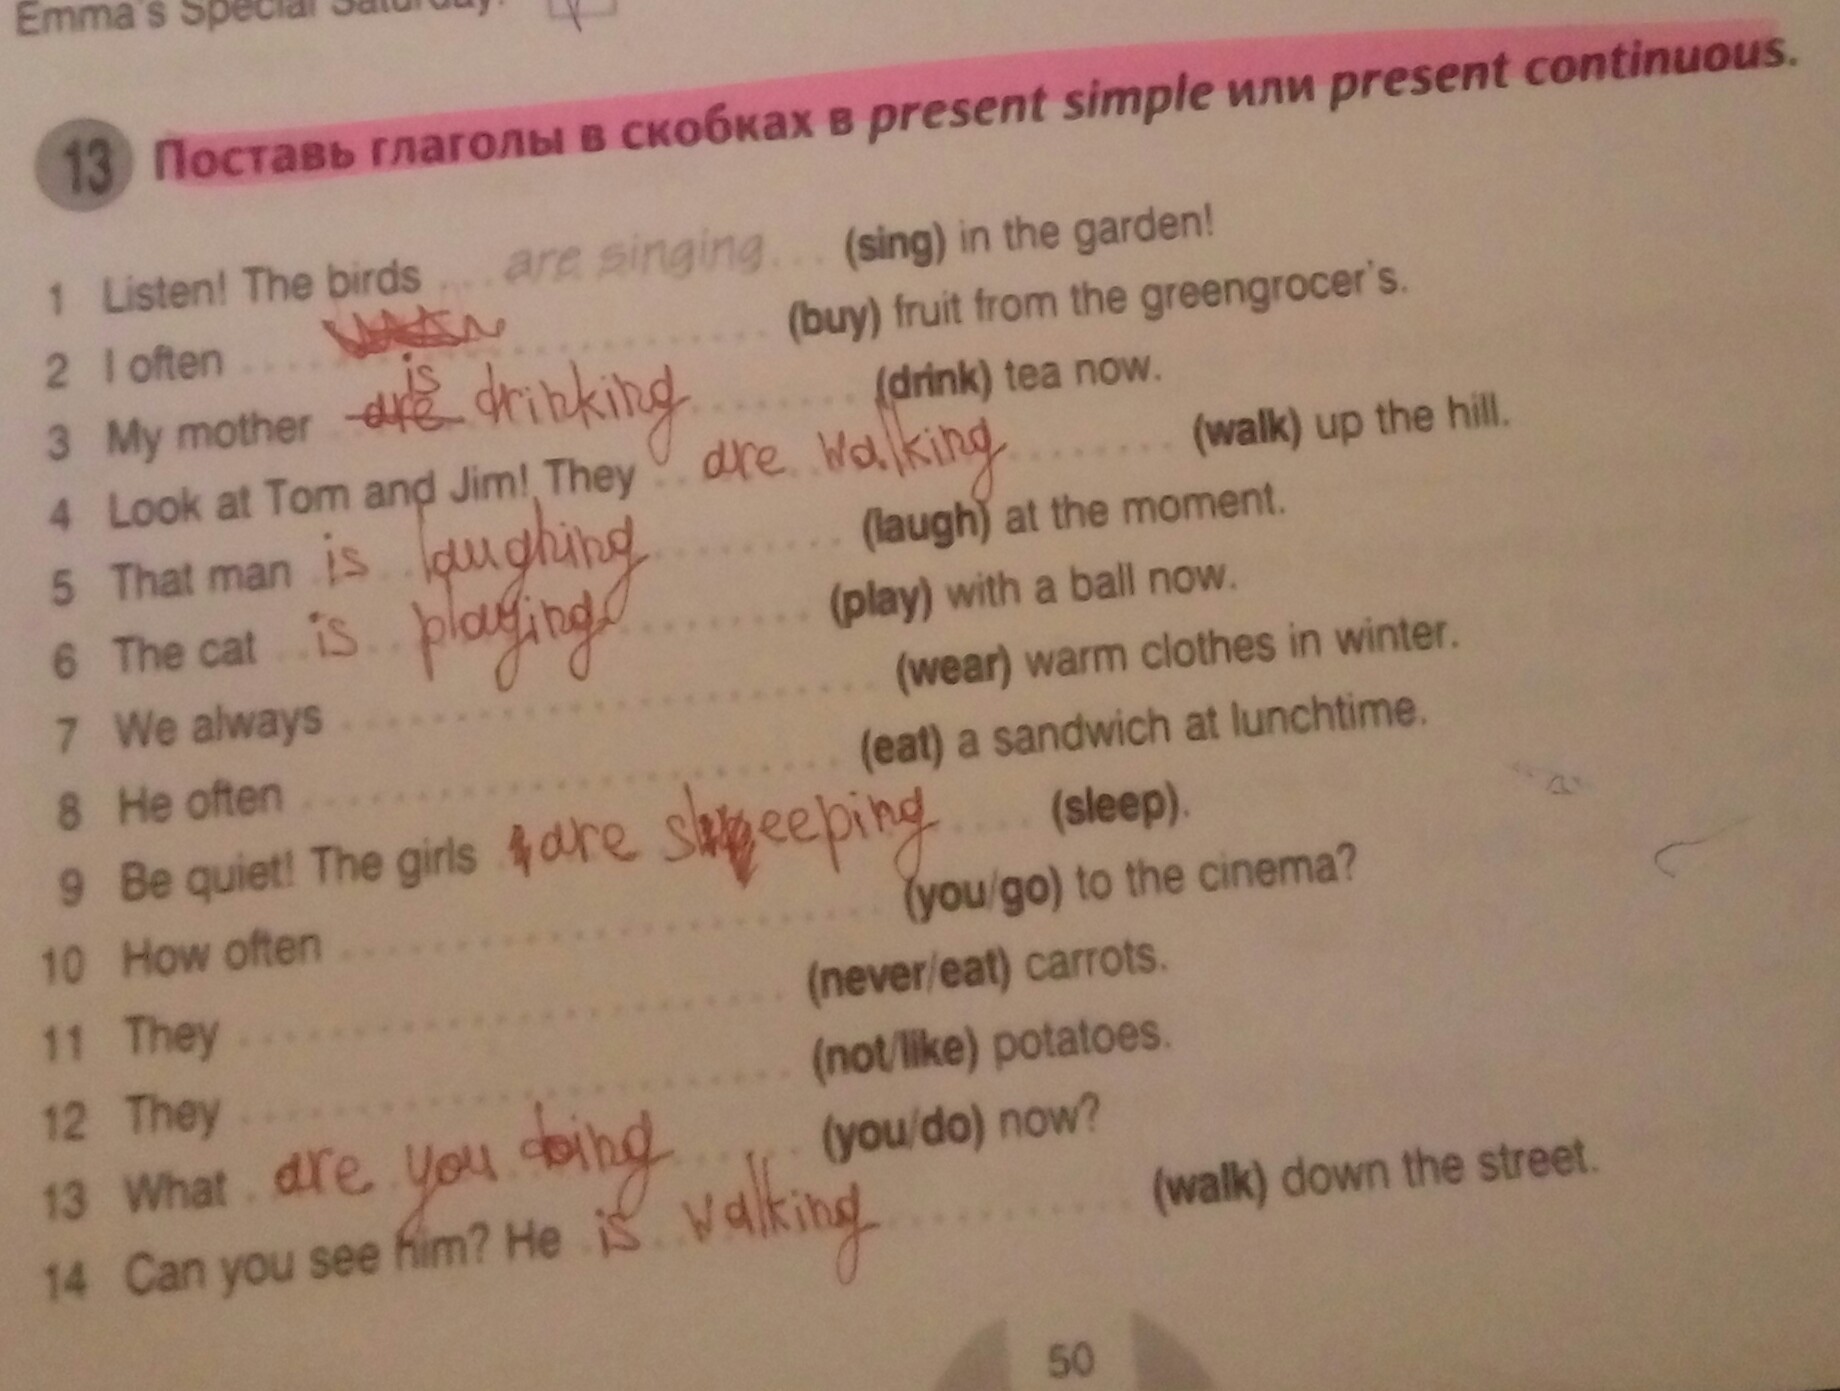 Emma's Special Saturday.
13 Поставь глаголы в скобках в present simple или present continuous.
1 Listen! The birds ... are singing ... (sing) in the garden!
2 I often .......... (buy) fruit from the greengrocer's.
3 My mother are is drinking ........ (drink) tea now.
4 Look at Tom and Jim! They .. are walking ........ (walk) up the hill.
5 That man is laughing ......... (laugh) at the moment.
6 The cat is playing ......... (play) with a ball now.
7 We always .......... (wear) warm clothes in winter.
8 He often .......... (eat) a sandwich at lunchtime.
9 Be quiet! The girls are sleeping .... (sleep).
10 How often .......... (you/go) to the cinema?
11 They .......... (never/eat) carrots.
12 They .......... (not/like) potatoes.
13 What are you doing ...... (you/do) now?
14 Can you see him? He is walking .......... (walk) down the street.
50